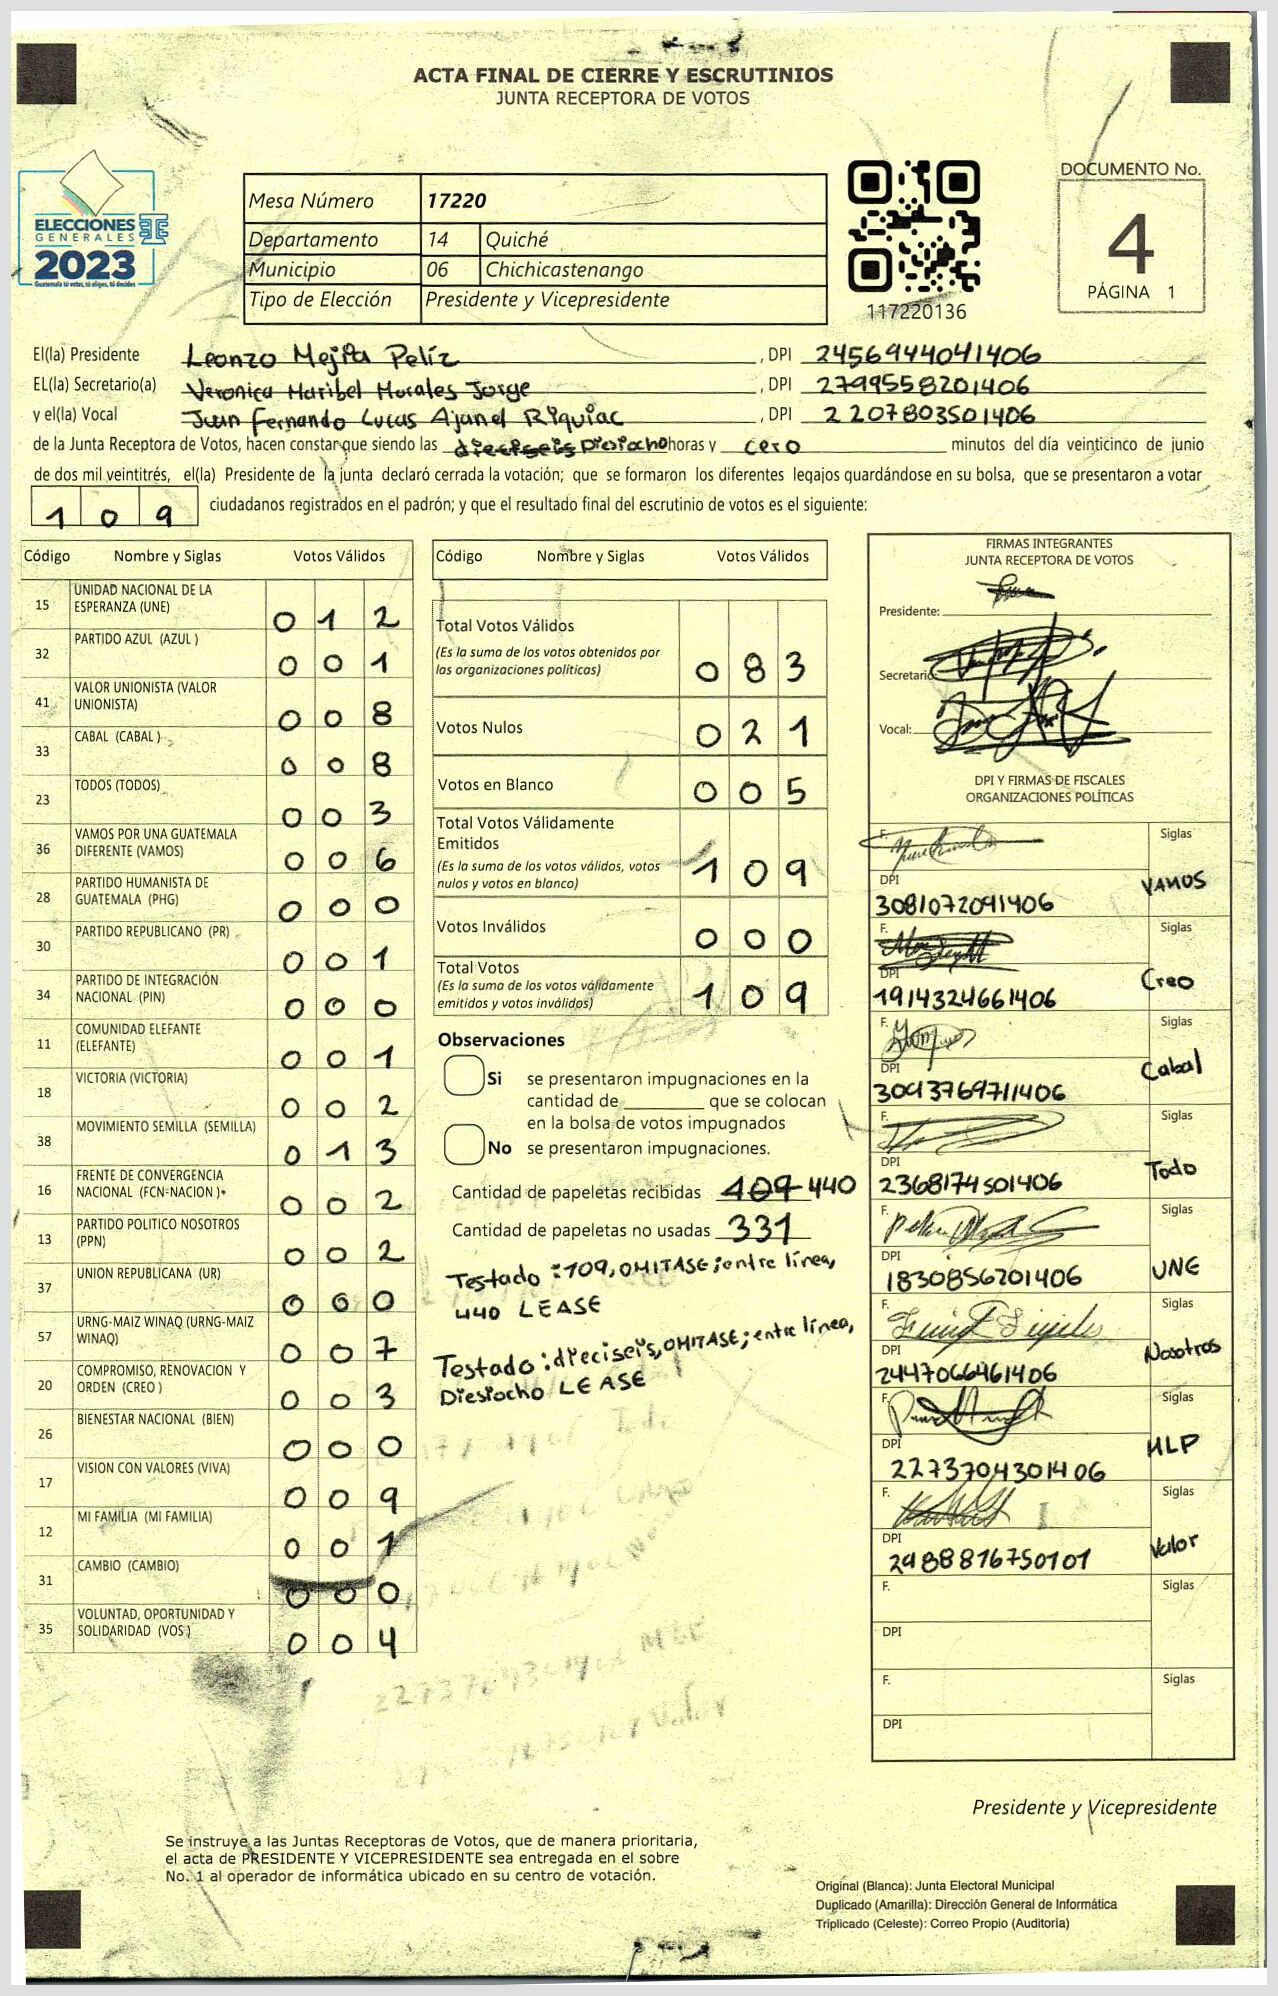 ACTA FINAL DE CIERRE Y ESCRUTINIOS
JUNTA RECEPTORA DE VOTOS
ELECCIONES
GENERALES
2023
Guatemala tú votas, tú eliges, tú decides
Mesa Número 17220
Departamento 14 Quiché
Municipio 06 Chichicastenango
Tipo de Elección Presidente y Vicepresidente
117220136
DOCUMENTO No.
4
PÁGINA 1
El(la) Presidente Leonzo Mejita Peliz , DPI 2456944041406
EL(la) Secretario(a) Veronica Maribel Morales Jorge , DPI 2799558201406
y el(la) Vocal Juan Fernando Lucas Ajanel Riquiac , DPI 2207803501406
de la Junta Receptora de Votos, hacen constar que siendo las dieciseis Diesiocho horas y cero minutos del día veinticinco de junio
de dos mil veintitrés, el(la) Presidente de la junta declaró cerrada la votación; que se formaron los diferentes legajos quardándose en su bolsa, que se presentaron a votar
109 ciudadanos registrados en el padrón; y que el resultado final del escrutinio de votos es el siguiente:
Código Nombre y Siglas Votos Válidos
15 UNIDAD NACIONAL DE LA ESPERANZA (UNE) 012
32 PARTIDO AZUL (AZUL ) 001
41 VALOR UNIONISTA (VALOR UNIONISTA) 008
33 CABAL (CABAL ) 008
23 TODOS (TODOS) 003
36 VAMOS POR UNA GUATEMALA DIFERENTE (VAMOS) 006
28 PARTIDO HUMANISTA DE GUATEMALA (PHG) 000
30 PARTIDO REPUBLICANO (PR) 001
34 PARTIDO DE INTEGRACIÓN NACIONAL (PIN) 000
11 COMUNIDAD ELEFANTE (ELEFANTE) 001
18 VICTORIA (VICTORIA) 002
38 MOVIMIENTO SEMILLA (SEMILLA) 013
16 FRENTE DE CONVERGENCIA NACIONAL (FCN-NACION ) 002
13 PARTIDO POLITICO NOSOTROS (PPN) 002
37 UNION REPUBLICANA (UR) 000
57 URNG-MAIZ WINAQ (URNG-MAIZ WINAQ) 007
20 COMPROMISO, RENOVACION Y ORDEN (CREO ) 003
26 BIENESTAR NACIONAL (BIEN) 000
17 VISION CON VALORES (VIVA) 009
12 MI FAMILIA (MI FAMILIA) 001
31 CAMBIO (CAMBIO) 000
35 VOLUNTAD, OPORTUNIDAD Y SOLIDARIDAD (VOS ) 004
Código Nombre y Siglas Votos Válidos
Total Votos Válidos
(Es la suma de los votos obtenidos por
las organizaciones políticas) 083
Votos Nulos 021
Votos en Blanco 005
Total Votos Válidamente
Emitidos
(Es la suma de los votos válidos, votos
nulos y votos en blanco) 109
Votos Inválidos 000
Total Votos
(Es la suma de los votos válidamente
emitidos y votos inválidos) 109
Observaciones
Si se presentaron impugnaciones en la
cantidad de ________ que se colocan
en la bolsa de votos impugnados
No se presentaron impugnaciones.
Cantidad de papeletas recibidas 109 440
Cantidad de papeletas no usadas 331
Testado : 109, OMITASE; entre línea,
440 LEASE
Testado : dieciseis, OMITASE; entre línea,
Diesiocho LEASE
FIRMAS INTEGRANTES
JUNTA RECEPTORA DE VOTOS
Presidente:
Secretario:
Vocal:
DPI Y FIRMAS DE FISCALES
ORGANIZACIONES POLÍTICAS
F. Siglas
DPI VAMOS
3081072091406
F. Siglas
DPI Creo
1914324661406
F. Siglas
DPI Cabal
3093769711406
F. Siglas
DPI Todo
2368174501406
F. Siglas
DPI UNE
1830856201406
F. Siglas
DPI Nosotros
2447066461406
F. Siglas
DPI MLP
2273704301406
F. Siglas
DPI Valor
2988816750101
F. Siglas
DPI
F. Siglas
DPI
Presidente y Vicepresidente
Se instruye a las Juntas Receptoras de Votos, que de manera prioritaria,
el acta de PRESIDENTE Y VICEPRESIDENTE sea entregada en el sobre
No. 1 al operador de informática ubicado en su centro de votación.
Original (Blanca): Junta Electoral Municipal
Duplicado (Amarilla): Dirección General de Informática
Triplicado (Celeste): Correo Propio (Auditoría)